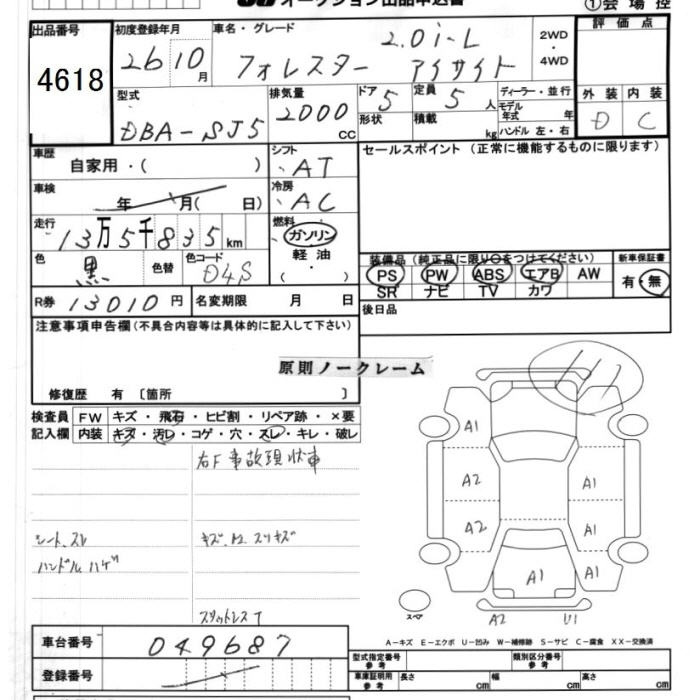 オークション出品申込書 ①会場控
出品番号 4618
初度登録年月 26 10月
車名・グレード 2.0i-L
フォレスター アイサイト
2WD・4WD
評価点
外装 内装
D C
型式 DBA-SJ5
排気量 2000 CC
ドア 5
形状
定員 5 人
積載 kg
ディーラー・並行
モデル年式 年
ハンドル 左・右
車歴 自家用・( )
シフト AT
セールスポイント (正常に機能するものに限ります)
車検 年 月( 日)
冷房 AC
走行 13万5千835km
燃料 ガソリン
軽油
( ・ )
色 黒 色替 色コード D4S
装備品 (純正品に限り○をつけてください) 新車保証書
PS PW ABS エアB AW 有・無
SR ナビ TV カワ
R券 13010円 名変期限 月 日
後日品
注意事項申告欄(不具合内容等は具体的に記入して下さい)
原則ノークレーム
修復歴 有 〔箇所 〕
検査員 FW キズ・飛石・ヒビ割・リペア跡・×要
記入欄 内装 キズ・汚レ・コゲ・穴・スレ・キレ・破レ
右F事故現状車
シート、スレ
ハンドルハゲ
スタットレスT
A1
A2 A1
A2 A1
A1 A1
スペア A2 U1
A-キズ E-エクボ U-凹み W-補修跡 S-サビ C-腐食 XX-交換済
車台番号 049687
登録番号
型式指定番号 参考 類別区分番号 参考
車庫証明用 参考 長さ cm 幅 cm 高さ cm